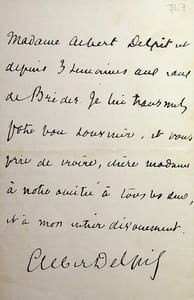 727
Madame Albert Delpit est
depuis 3 semaines aux eaux
de Brides. Je lui transmets
votre bon souvenir, et vous
prie de croire, chère madame
à notre amitié à tous les deux,
et à mon entier dévouement.
Albert Delpit